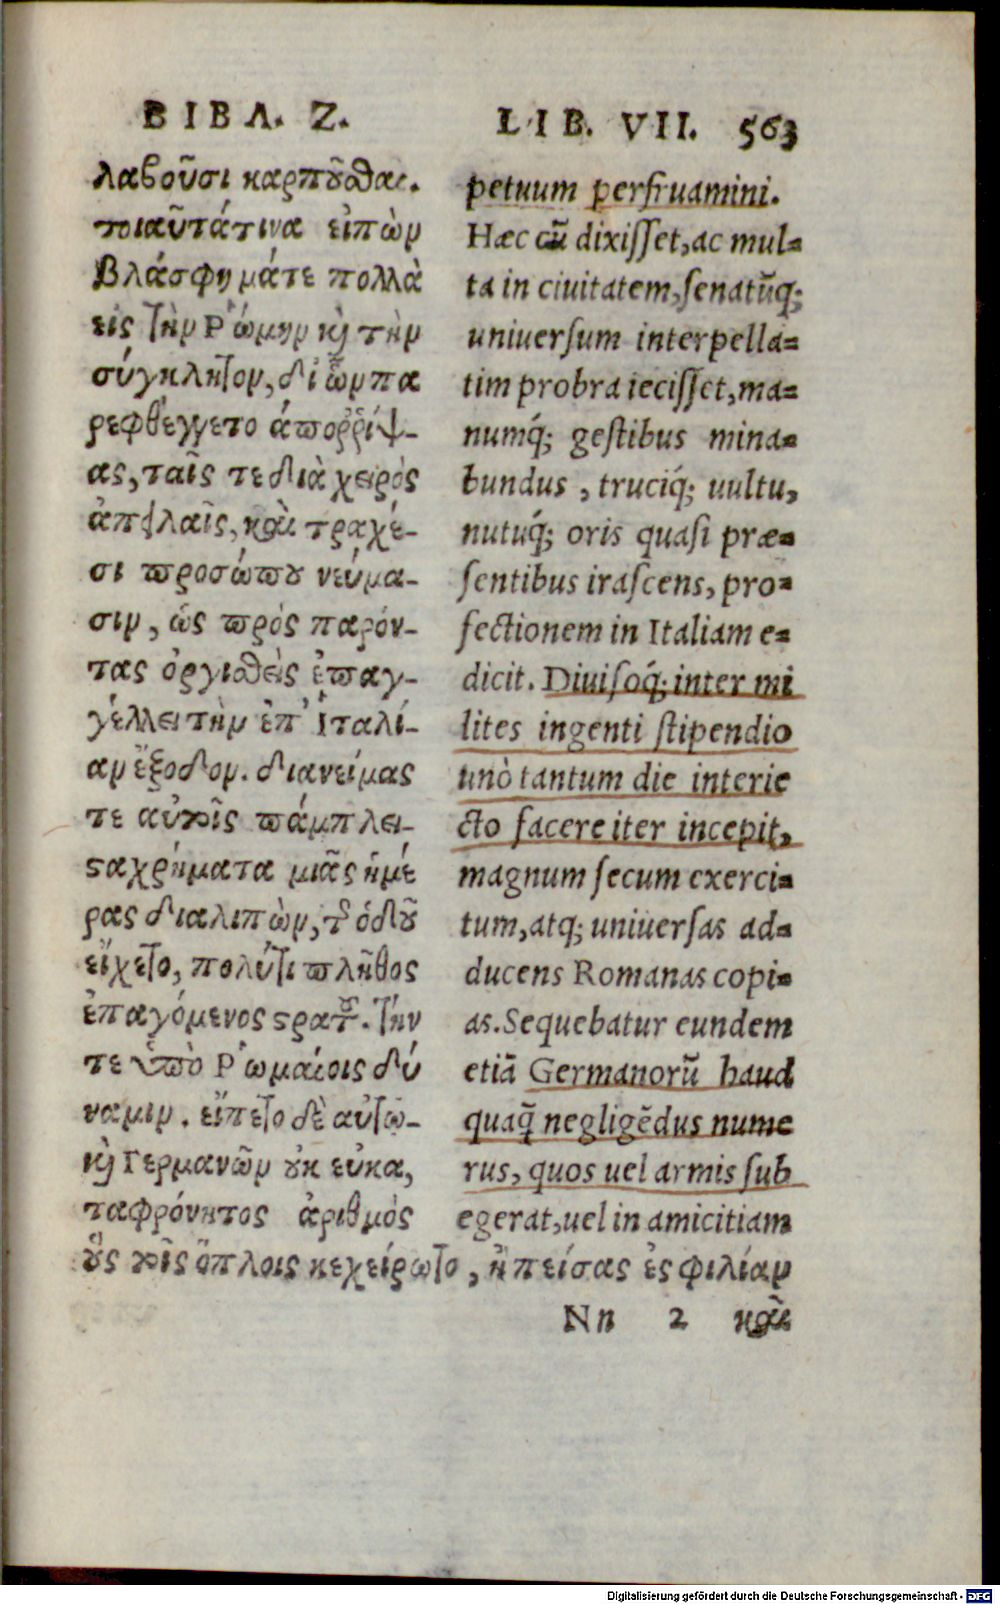 ΒΙΒΛ. Ζ.
λαβοῦσι καρπȣ̃σθαι.
τοιαῦτά τινα εἰπὼν
βλάσφημά τε πολλὰ
εἰς τὴν Ῥώμην κὶ τὴν
σύγκλητον, δι᾽ ὧν πα
ρεφθέγγετο ἀποῤῥίψ-
ας, ταῖς τε διὰ χειρὸς
ἀπειλαῖς, καὶ τραχέ-
σι προσώπȣ νεύμα-
σιν, ὡς πρὸς παρόν-
τας ὀργισθεὶς ἐπαγ-
γέλλει τὴν ἐπ᾽ Ἰταλί-
αν ἔξοδον. διανείμας
τε αὐτοῖς πάμπλει-
ϛα χρήματα μιᾶς ἡμέ
ρας διαλιπὼν, τ͂ ὁδȣ̃
εἴχετο, πολύ τι πλῆθος
ἐπαγόμενος ϛρατȣ͂. τήν
τε ὑπὸ Ῥωμαίοις δύ
ναμιν. εἵπετο δὲ αὐτῷ-
κὶ Γερμανῶν ȣκ εὐκα,
ταφρόνητος ἀριθμὸς
ȣ̔̀ς τοῖς ὅπλοις κεχείρωτο, ἢ πείσας ἐς φιλίαν
LIB. VII. 563
petuum perfruamini.
Hæc cũ dixiſſet, ac mul=
ta in ciuitatem, ſenatũq;
uniuerſum interpella=
tim probra ieciſſet, ma=
numq́; geſtibus mina=
bundus, truciq́; uultu,
nutuq́; oris quaſi præ=
ſentibus iraſcens, pro=
fectionem in Italiam e=
dicit. Diuiſoq́; inter mi
lites ingenti ſtipendio
unò tantum die interie
cto facere iter incepit,
magnum ſecum exerci=
tum, atq; uniuerſas ad=
ducens Romanas copi=
as. Sequebatur eundem
etiã Germanorũ haud
quaq̃ negligẽdus nume
rus, quos uel armis ſub
egerat, uel in amicitiam
Nn 2 καὶ
Digitalisierung gefördert durch die Deutsche Forschungsgemeinschaft - DFG